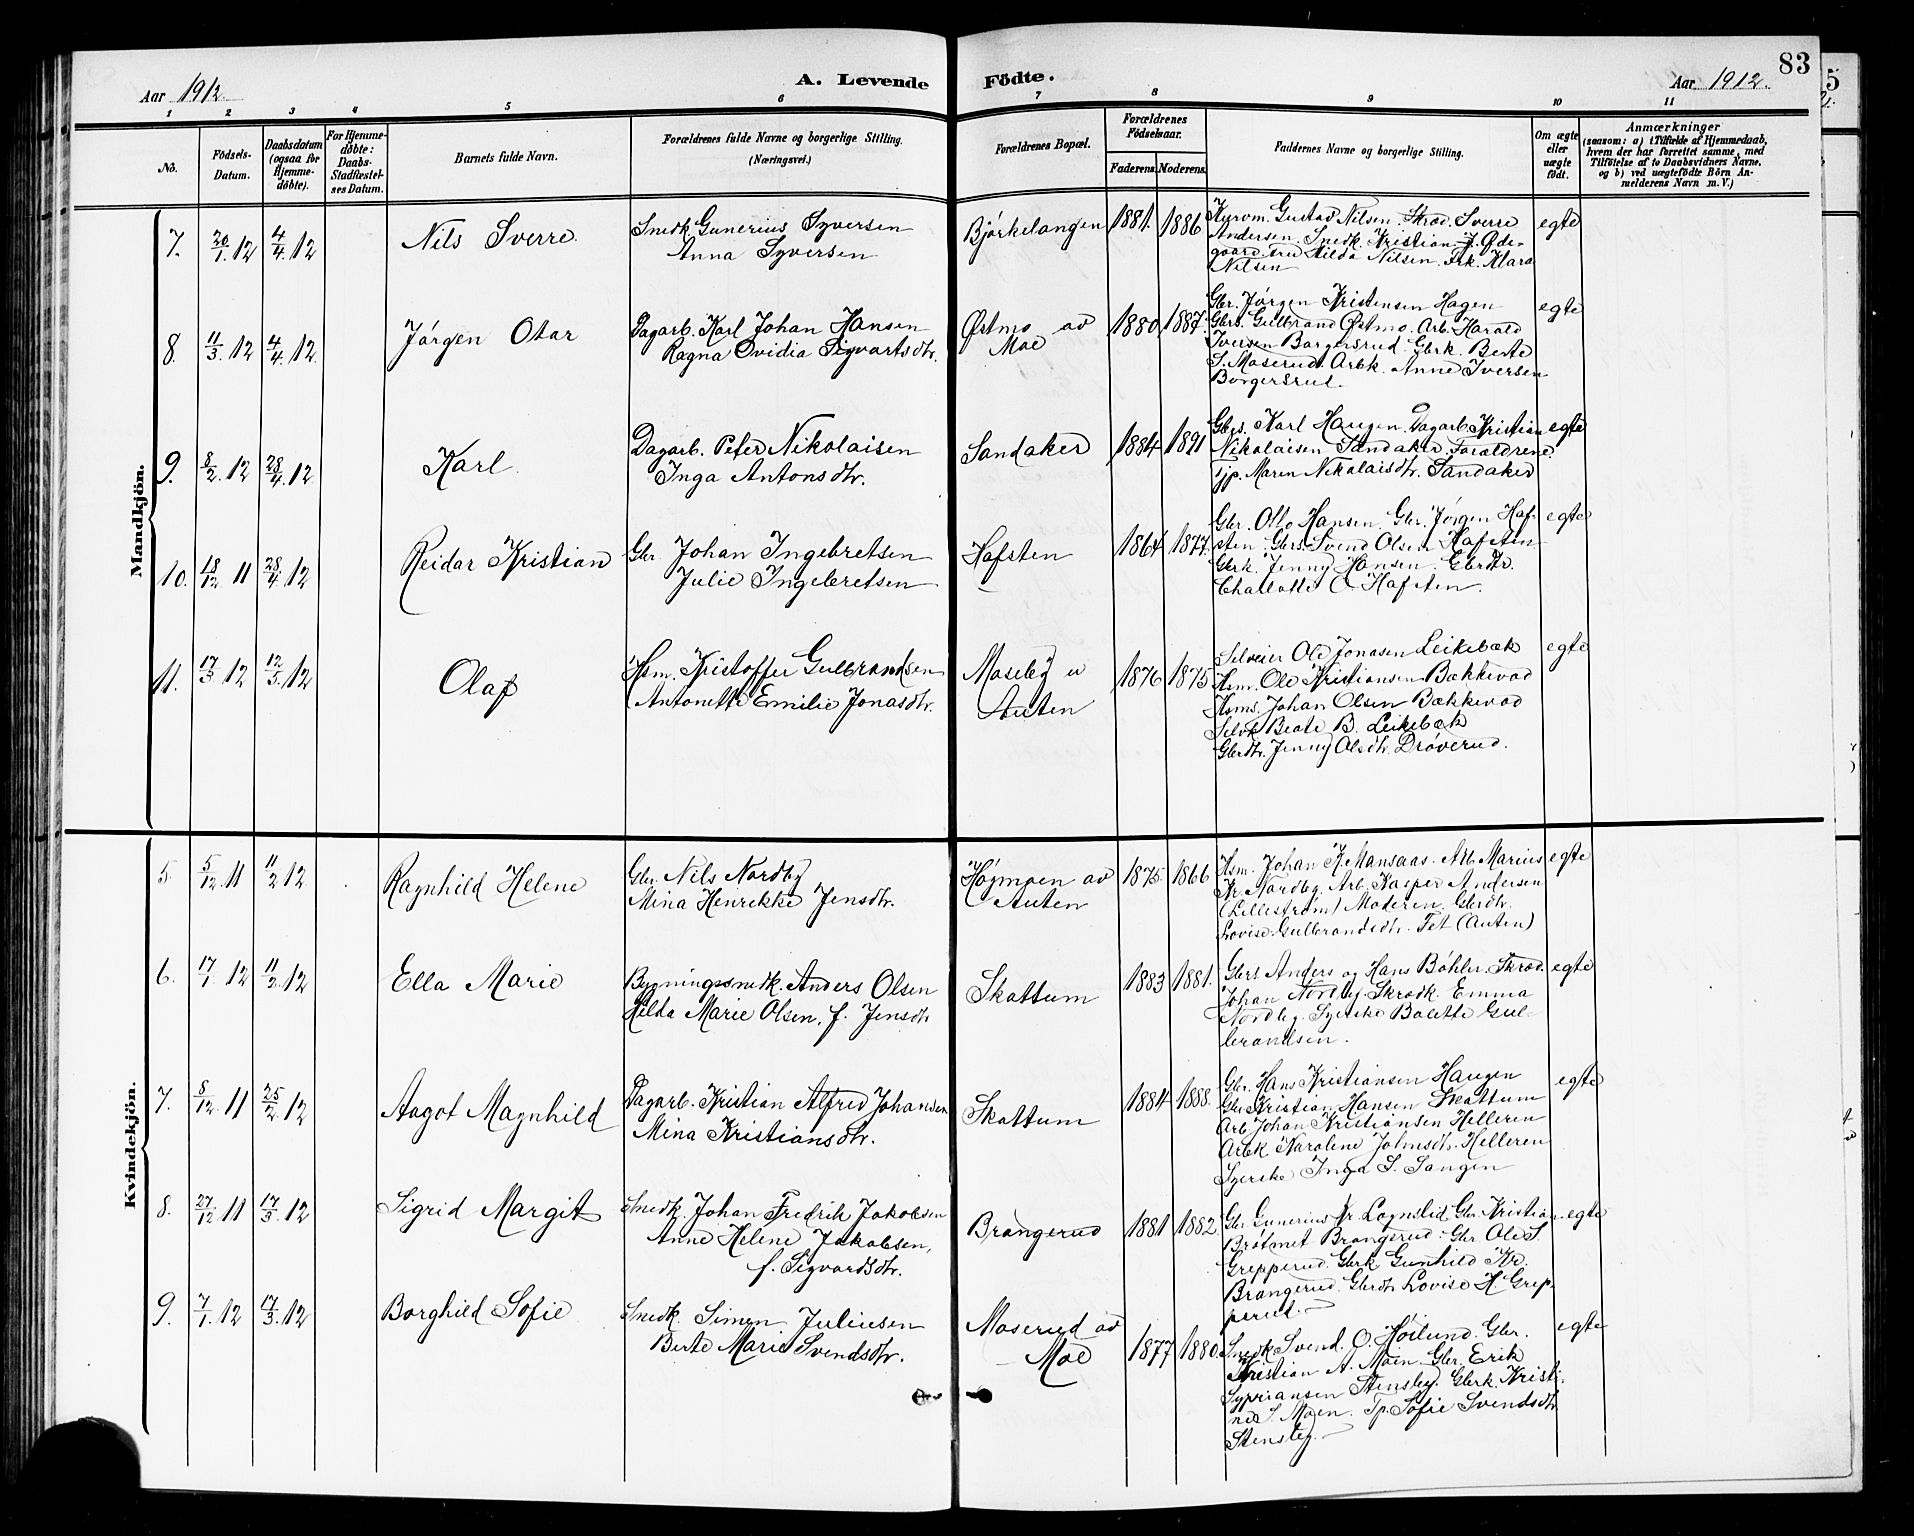 83
Aar 1912. A. Levende Födte. Aar 1912.
1 2 3 4 5 6 7 8 9 10 11
No.
Födsels-
Datum.
Daabsdatum
(ogsaa for
Hjemme-
døbte).
For Hjemme-
døbte:
Daabs-
Stadfæstel-
ses Datum.
Barnets fulde Navn.
Forældrenes fulde Navne og borgerlige Stilling.
(Næringsvei.)
Forældrenes Bopæl.
Forældrenes
Födselsaar.
Faderens. Moderens.
Faddernes Navne og borgerlige Stilling.
Om ægte
eller
uægte
født.
Anmærkninger
(saasom: a) i Tilfælde af Hjemmedaab,
hvem der har forrettet samme, med
Tilføielse af to Daabsvidners Navne,
og b) ved uægtefödte Börn An-
melderens Navn m. V.)
Mandkjön.
7. 20/1 12 4/4 12 Nils Sverre
Snedk. Gunerius Syversen
Anna Syversen
Bjørkelangen 1881. 1886
Kurvm. Gustav Nilsen. Skræd. Sverre
Andersen. Snedk. Kristian J. Øde-
gaard. Fru Hilda Nilsen. Frk. Klara
Nilsen
egte
8. 11/3 12 4/4 12 Jørgen Otar
Dagarb. Karl Johan Hansen
Ragna Ovidia Sigvartsdtr.
Østmo av
Moe
1880 1887.
Gbr. Jørgen Kristensen Hagen
Gbrs. Gulbrand Østmo. Arb. Harald
Iversen Borgersrud. Gbrk. Berte
S. Moserud. Arbk. Anne Iversen
Borgersrud.
egte
9. 8/2 12 28/4 12 Karl
Dagarb. Peter Nikolaisen
Inga Antonsdtr.
Sandaker 1884 1891
Gbrs. Karl Haugen. Dagarb. Kristian
Nikolaisen Sandaker. Forældrene.
Tjp. Maren Nikolaisdtr. Sandaker
egte
10. 18/12 11 28/4 12 Reidar Kristian
Gbr. Johan Ingebretsen
Julie Ingebretsen
Hafsten 1864 1877.
Gbr. Otto Hansen. Gbr. Jørgen Haf-
sten. Gbrs. Svend Olsen Hafsten
Gbrk. Jenny Hansen. Gbrdtr.
Charlotte O. Hafsten.
egte
11. 17/3 12 12/5 12 Olaf
Hsm. Kristoffer Gulbrandsen
Antonette Emilie Jonasdtr.
Moseby u
Auten
1876 1875
Selveier Ole Jonasen Leikebæk
Hsm. Ole Kristiansen Bækkevad
Hsms. Johan Olsen Bækkevad
Selvk Beate B. Leikebæk
Gbrdtr. Jenny Olsdtr. Drøverud.
egte
Kvindekjön.
5. 5/12 11 11/2 12 Ragnhild Helene
Gbr. Nils Nordby
Mina Henrikke Jensdtr.
Høgmoen av
Auten
1875 1866
Hsm. Johan K. Mansaas. Arb. Marius
Kr. Nordby. Arb. Kasper Andersen
(Lillestrøm) Moderen. Gbrdtr.
Lovise Gulbrandsdtr. Fet (Auten)
egte
6. 17/1 12 11/2 12 Ella Marie
Bygningssnedk. Anders Olsen
Hilda Marie Olsen, f. Jensdtr
Skattum 1883 1881.
Gbrs. Anders og Hans Bøhler. Skræd.
Johan Nordby. Skrædk. Emma
Nordby. Syerske Bolette Gul-
brandsen.
egte
7. 8/12 11 25/2 12 Aagot Magnhild
Dagarb. Kristian Alfred Johansen
Mina Kristiansdtr.
Skattum 1884 1888.
Gbr. Hans Kristiansen Haugen
Gbr. Kristian Hansen Skattum
Arb. Johan Kristiansen Helleren
Arbk Karoline Johnsdtr. Helleren
Syerske Inga S. Sangen
egte
8. 27/12 11 17/3 12 Sigrid Margit
Snedk. Johan Fredrik Jakobsen
Anne Helene Jakobsen,
f. Sigvardsdtr.
Brangerud 1881 1882
Gbr. Gunerius Kr. Lognslid. Gbr. Kristian
Brøtmet Brangerud. Gbr. Ole S.
Grepperud. Gbrk Gunhild Kr.
Brangerud. Gbrdtr. Lovise H. Grep-
perud.
egte
9. 7/1 12 17/3 12 Borghild Sofie
Snedk. Simen Juliusen
Berte Marie Svendsdtr.
Moserud av
Moe
1877 1880.
Snedk. Svend O. Høilund. Gbr.
Kristian A. Moen. Gbr. Erik
Sypriansen Stensby. Gbrk. Kristi-
ne S. Moen. Tp. Sofie Svendsdtr
Stensby.
egte